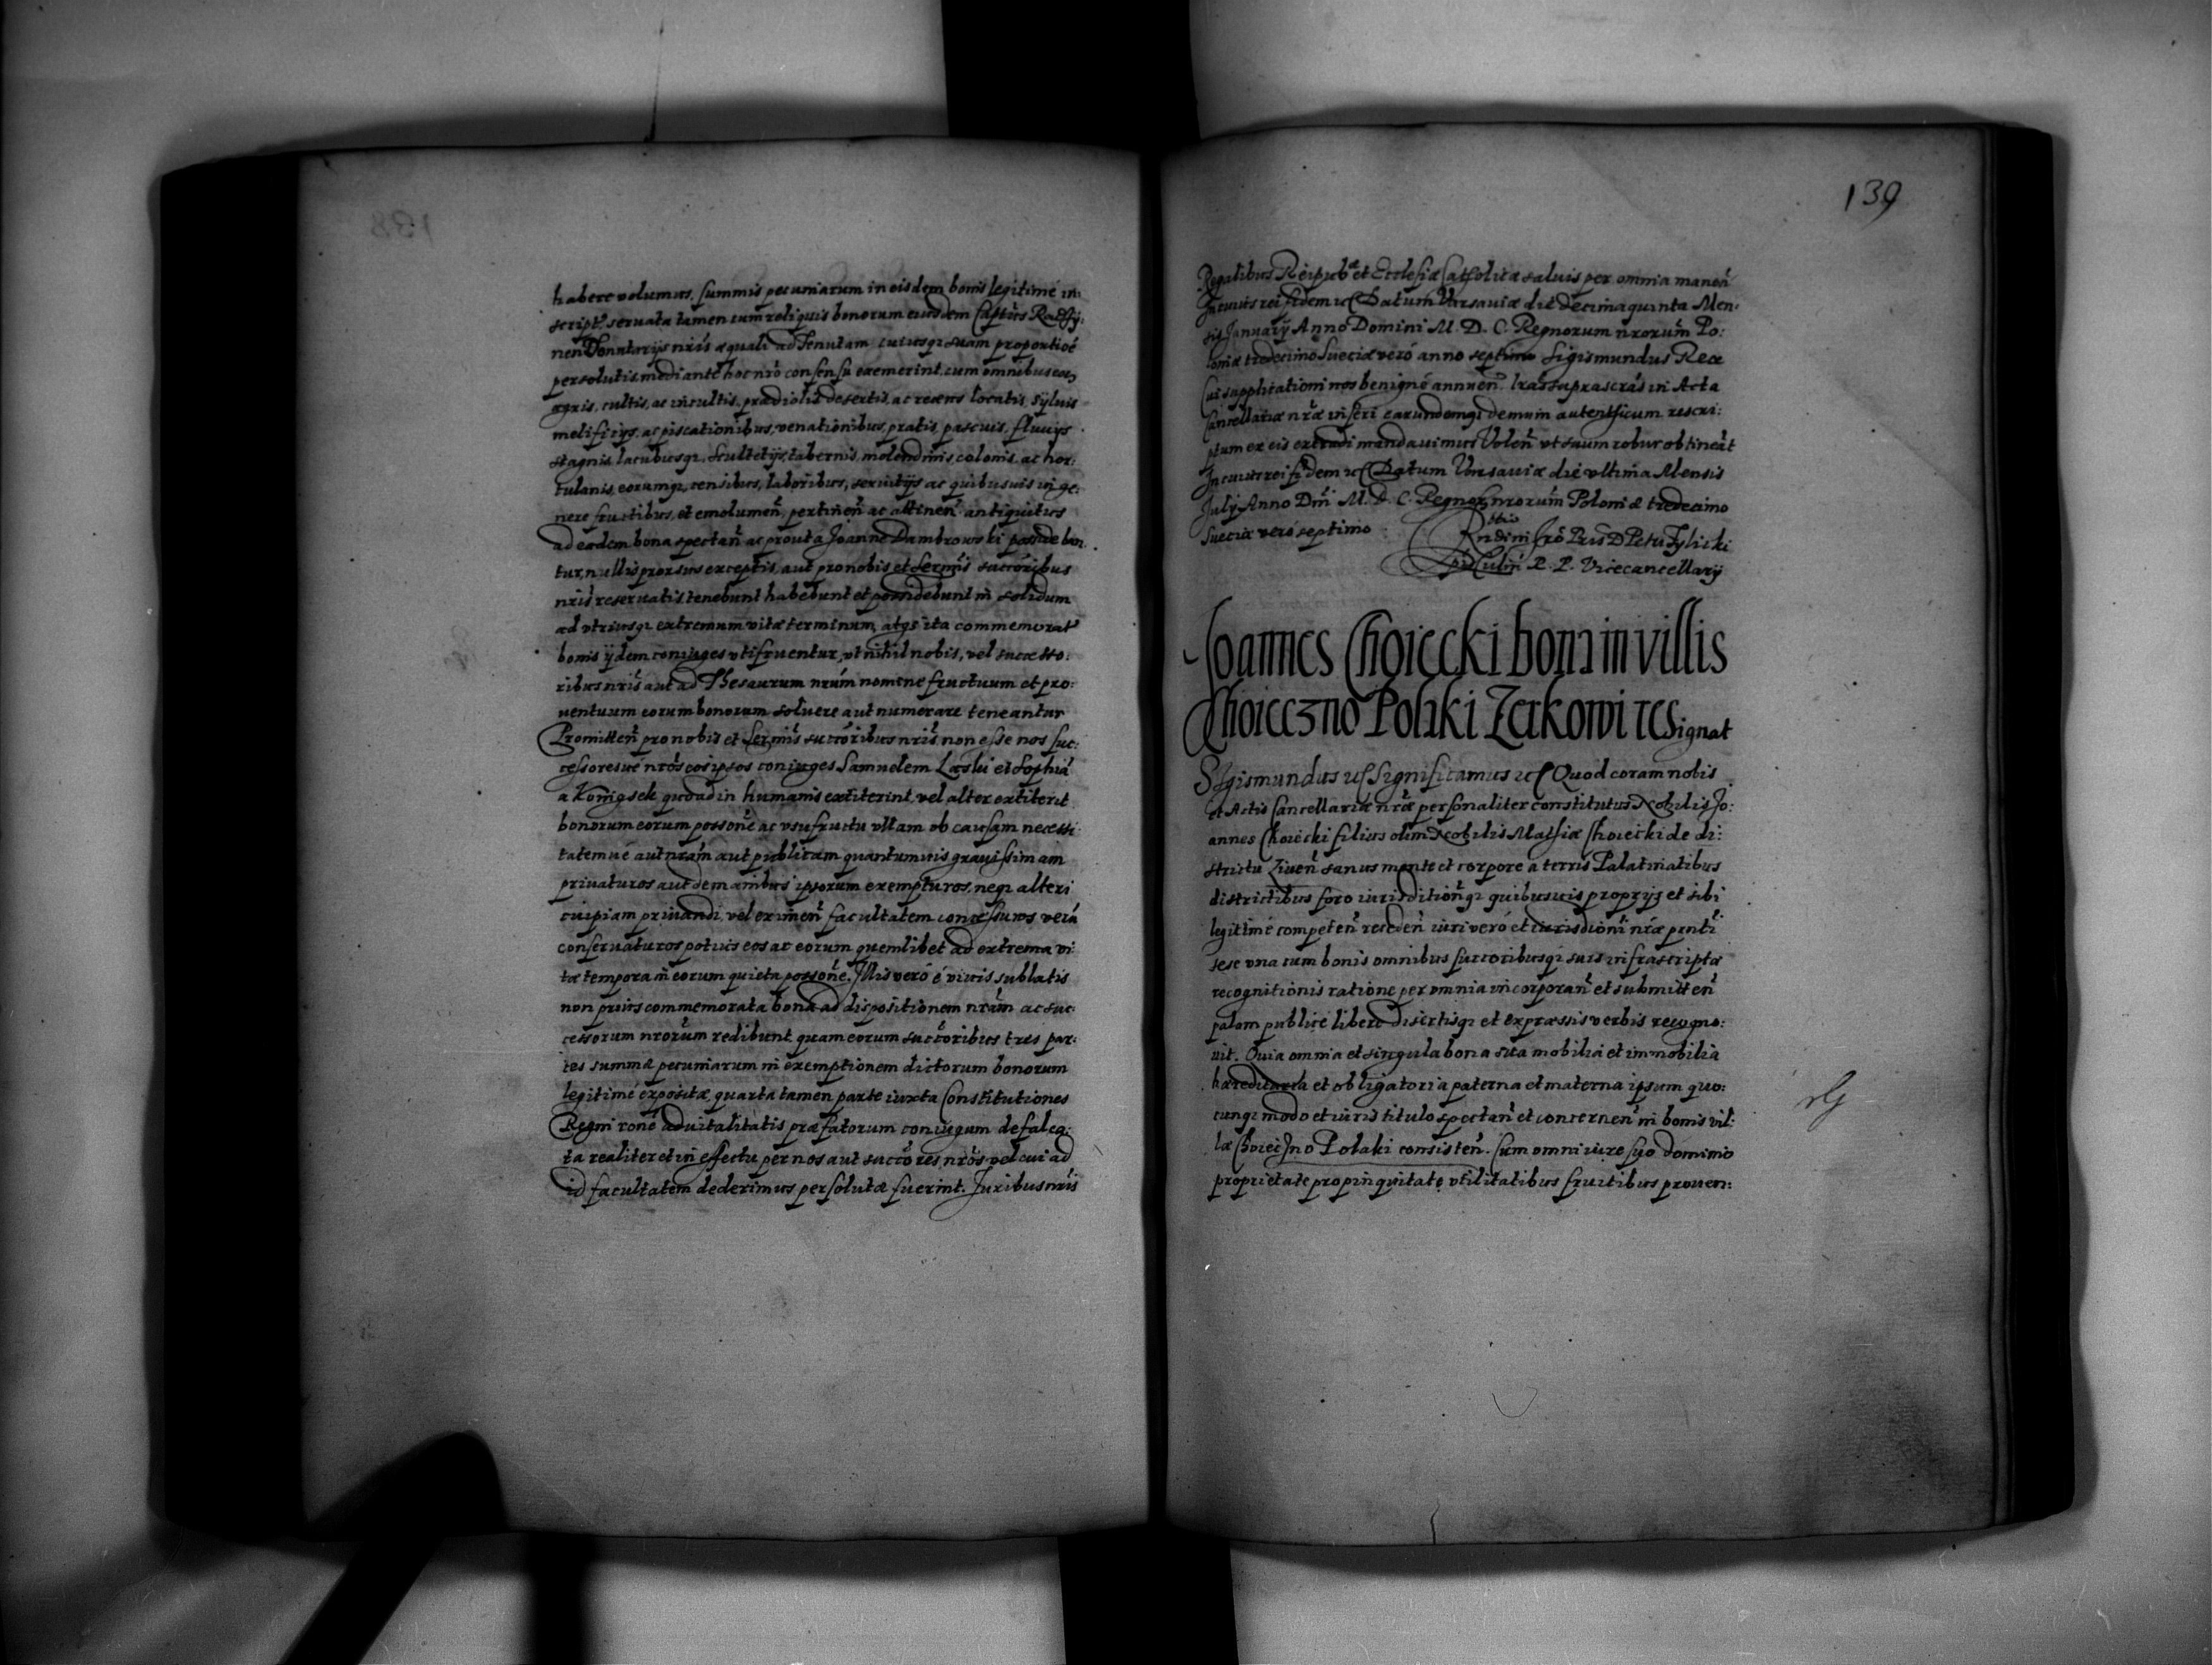 habere volumus, summis pecuniarum in eisdem bonis legitimé in:
script. seruata tamen cum reliquis bonorum eiusdem
nen Donatarijs nris̃ æquali ad Tenutam cuiusq; suam proportioẽ
persolutis mediante hoc nrõ consensu exemerint, cum omnibus
agris, cultis, ac incultis, prædiolis desertis, ac recens locatis, syluis
melificijs, ac piscationibus, venationibus, pratis, pascuis, fluuijs
stagnis, lacubusq;, scultetijs, tabernis, molendinis, colonis, ac hor:
tulanis, eorumq;, censibus, laboribus, seruitijs ac quibusuis in ge:
nere fructibus, et emolumeñ, pertineñ ac attineñ antiquitus
ad eadem bona spectañ ac prout a Joanne Dambrowski posside ban
tur, nullis prorsus exceptis, aut pro nobis et Sermis̃ succõribus
nris̃ reseruatis, tenebunt habebunt et possidebunt in solidum
ad vtriusq; extremum vitæ terminum, atq; ita commemorat
bonis ijdem coniuges vtifruentur, vt nihil nobis, vel successo:
ribus nris̃ aut ad Thesaurum nrũm nomine fructuum et pro:
uentuum eorum bonorum soluere aut numerare teneantur
Promitteñ pro nobis et Sermis̃ succõribus nris̃ non esse nos suc:
cessoresué nrõs eos ipsos coniuges Samuelem Laski et Sophiã
a Konigsek quoad in humanis extiterint, vel alter extiterit
bonorum eorum possoñe ac vsufructu vllam ob causam necessi
tatemué aut nrãm aut publicam quantumuis grauissimam
priuaturos aut de manibus ipsorum exempturos, neq; alteri
cuipiam priuandi, vel eximeñ facultatem concessuros verũ
conseruaturos potius eos ac eorum quemlibet ad extrema vi:
tæ tempora in eorum quieta possoñe. Illis veró é viuis sublatis
non prius commemorata bona ad dispositionem nrãm ac suc:
cessorum nrorũm redibunt quam eorum succõribus tres par:
tes summæ pecuniarum in exemptionem dictorum bonorum
legitimé expositæ, quarta tamen parte iuxta Constitutiones
Regni rone aduitalitatis præfatorum coniugum defalca:
ta realiter et in effectu per nos aut succõres nrõs vel cui ad
id facultatem dederimus persolutæ fuerint. Juribus nris̃
139
Regalibus Reipub̃æ et Ecclesiæ Catholicæ saluis per omnia maneñ
In cuius rei fidem Datum Varsauiæ die decima quinta Men:
sis January Anno Domini M. D. C. Regnorum nrorũm Po:
loniæ tredecimo Sueciæ veró anno septimo Sigismundus Rex
Cui supplicationi nos benigné annueñ. lrãs suprascrãs in Acta
Cancellariæ nrãe inseri earundemq; demum autenthicum rescri:
ptum ex eis extradi mandauimus Voleñ vt suum robur obtineãt
In cuius rei fidem Datum Varsauiæ die vltima Mensis
July Anno Dñi M. D. C. Regnor̃ nrorũm Poloniæ tredecimo
Sueciæ veró septimo
Rndĩmi Xrõ Pris̃ D Petri Tylicki
Epi Culm̃ R. P. Vicecancellary
Joannes Choiecki bona in villis
Choieczno Polaki Zerkowi re Signat
Sigismundus Significamus Quod coram nobis
et Actis Cancellariæ nrãe personaliter constitutus Nobilis Jo:
annes Choiecki filius olim Nobilis Mathiæ Choiecki de di:
strictu Liueñ sanus mente et corpore a terris Palatinatibus
districtibus foro iurisditioñq; quibusuis proprijs et sibi
legitimé competeñ recedeñ iuri veró et iurisdioni nrãe pñti
sese vna cum bonis omnibus succoribusq; suis infrascriptæ
recognitionis ratione per omnia incorporañ et submitteñ
palam publice libere disertisq; et expræssis verbis recogno:
uit. Quia omnia et singula bona sua mobilia et immobilia
hæreditaria et obligatoria paterna et materna ipsum quo:
cunq; modo et iuris titulo spectañ et concerneñ in bonis vil:
læ Choieczno Polaki consisteñ. Cum omni iure suo dominio
proprietate propinquitate vtilitatibus fruitibus prouen: